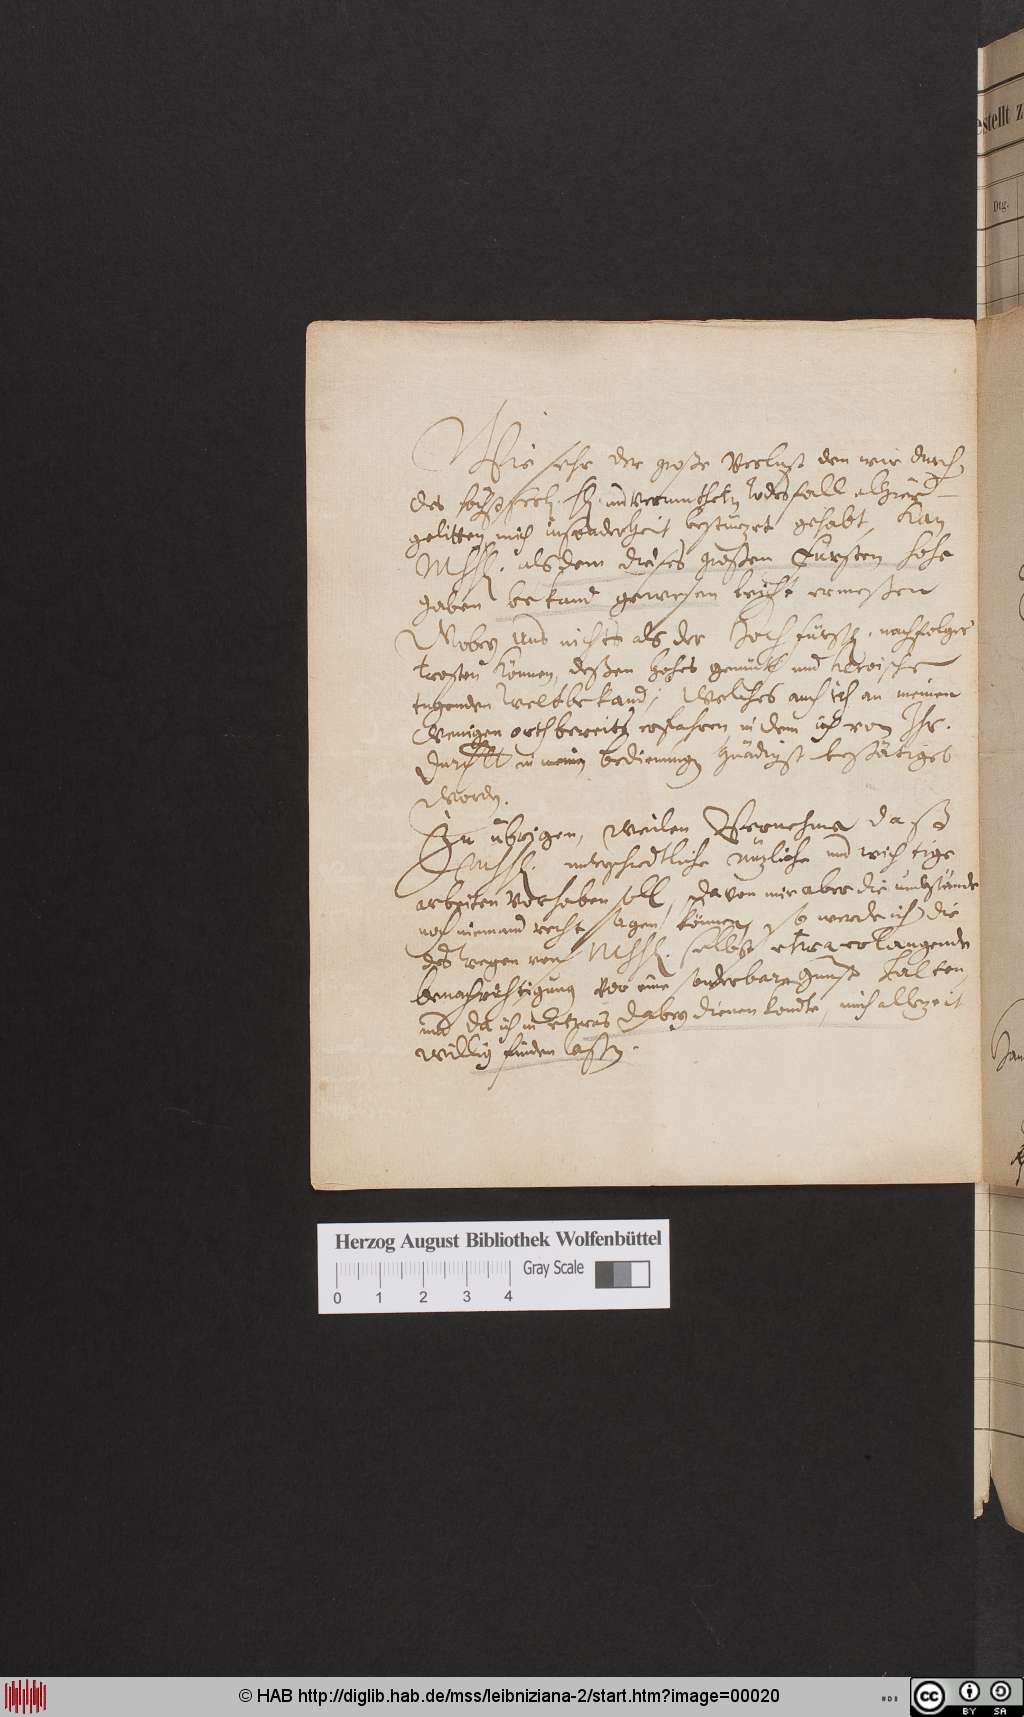 Wie sehr der große Verlust den wir durch
des höchstseel. H. unvermutheten Todesfall alhier
gelitten mich insonderheit bestürzet gehabt, kan
MhH. als dem dieses großen Fürsten hohe
gaben bekand gewesen leicht ermeßen
Wobey uns nichts als der Hochfürstl. nachfolger
trosten können, deßen hohes gemüth und heroische
tugenden weltbekand; Welches auch ich an meinen
Wenigen orth bereits erfahren, in dem ich von Ihr.
Durchlt in meinen bedienungen gnädigst bestätiget
worden.
Im übrigen, weilen Vernehme daß
MhH. unterschiedtliche nüzliche und wichtige
arbeiten vorhaben soll, davon mir aber die umbstände
noch niemand recht sagen können, so werde ich die
deswegen von MhH. selbst etwa erlangende
benachrichtigung vor eine sonderbare Gunst halten
und da ich in etwas dabey dienen kondte, mich allezeit
willig finden laßen.
estellt z
Dtg.
Herzog August Bibliothek Wolfenbüttel
Gray Scale
0 1 2 3 4
© HAB http://diglib.hab.de/mss/leibniziana-2/start.htm?image=00020
HAB
CC BY SA